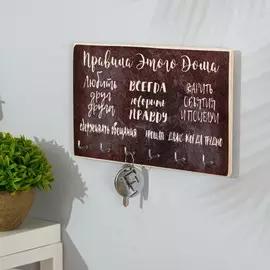 Правила Этого Дома
Любить друг друга
ВСЕГДА говорить ПРАВДУ
ДАРИТЬ ОБЪЯТИЯ И ПОЦЕЛУИ
сдерживать обещания
ПРОЩАТЬ ДАЖЕ КОГДА ТРУДНО